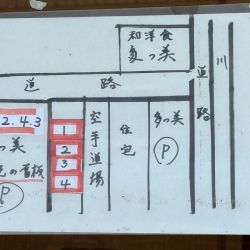 和洋食
多つ美
川
道路
道路
2.4.3
つ美
色の看板
P
1
2
3
4
空手道場
住宅
多つ美
P